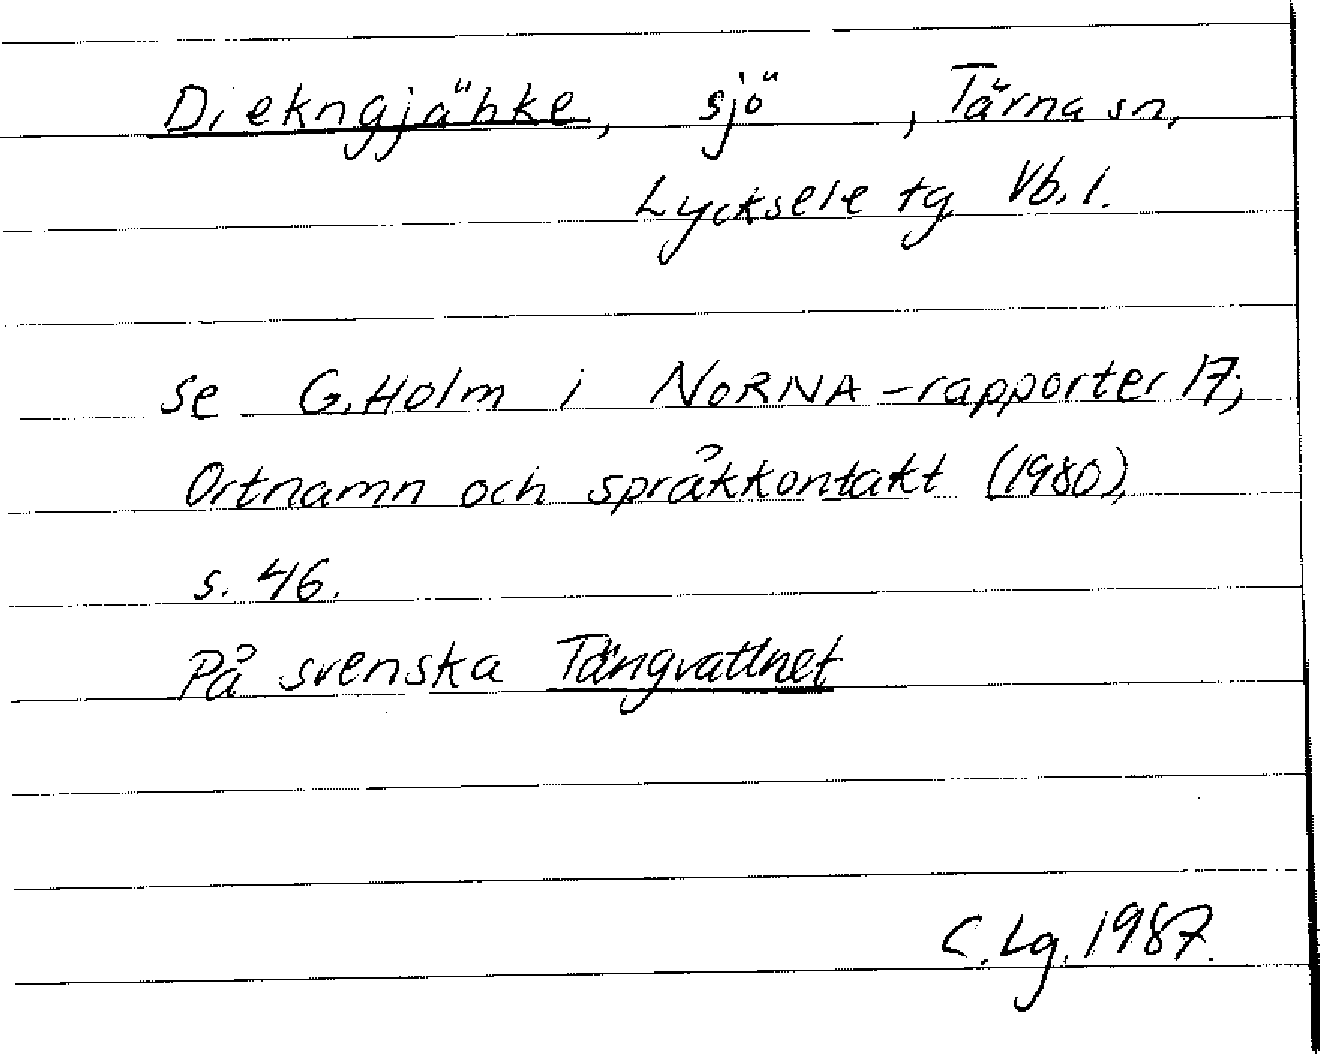 Diekngjähke, sjö, Tärna sn,
Lycksele tg Vb. l.
se G. Holm i NORNA-rapporter 17;
Ortnamn och språkkontakt (1980),
s. 46.
På svenska Tängvattnet
C. Lg. 1987.